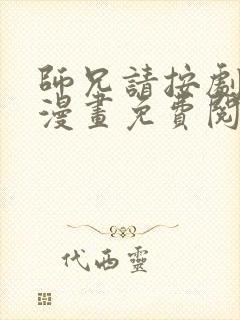 師兄請按劇
漫畫免費閱
代西靈